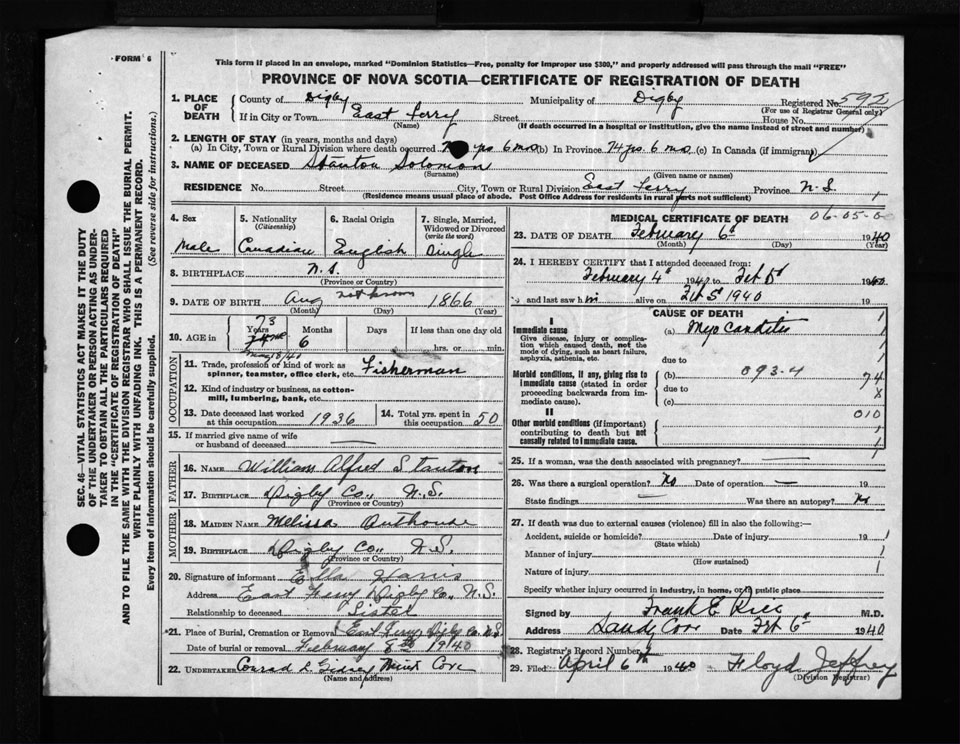 FORM 6
This form if placed in an envelope, marked "Dominion Statistics—Free, penalty for improper use $300," and properly addressed will pass through the mail "FREE"
PROVINCE OF NOVA SCOTIA—CERTIFICATE OF REGISTRATION OF DEATH
1. PLACE OF DEATH
County of Digby Municipality of Digby Registered No.
(For use of Registrar General only)
If in City or Town East Ferry Street House No.
(Name) (If death occurred in a hospital or institution, give the name instead of street and number)
2. LENGTH OF STAY (in years, months and days)
(a) In City, Town or Rural Division where death occurred yrs 6 mo (b) In Province yrs 6 mo (c) In Canada (if immigrant)
3. NAME OF DECEASED Stanton Solomon
(Surname) (Given name or names)
RESIDENCE No. Street City, Town or Rural Division East Ferry Province N.S.
(Residence means usual place of abode. Post Office Address for residents in rural parts not sufficient)
4. Sex 5. Nationality 6. Racial Origin 7. Single, Married,
(Citizenship) Widowed or Divorced
(write the word)
Male Canadian English Single
8. BIRTHPLACE N.S.
(Province or Country)
9. DATE OF BIRTH Aug not known 1866
(Month) (Day) (Year)
10. AGE in 73
Years Months Days If less than one day old
6 hrs. or min.
OCCUPATION
11. Trade, profession or kind of work as Fisherman
spinner, teamster, office clerk, etc.
12. Kind of industry or business, as cotton-
mill, lumbering, bank, etc.
13. Date deceased last worked 1936 14. Total yrs. spent in 50
at this occupation this occupation
15. If married give name of wife
or husband of deceased
FATHER
16. NAME William Alfred Stanton
17. BIRTHPLACE Digby Co., N.S.
(Province or Country)
MOTHER
18. MAIDEN NAME Melissa Outhouse
19. BIRTHPLACE Digby Co., N.S.
(Province or Country)
20. Signature of informant Ella Harris
Address East Ferry Digby Co., N.S.
Relationship to deceased Sister
21. Place of Burial, Cremation or Removal East Ferry Digby Co. N.S.
Date of burial or removal February 8th 1940
22. UNDERTAKER Conrad Cove
(Name and address)
MEDICAL CERTIFICATE OF DEATH
23. DATE OF DEATH February 6 1940
(Month) (Day) (Year)
24. I HEREBY CERTIFY that I attended deceased from:
February 4 1940 to Feb 1940
and last saw him alive on Feb 5 1940 19
CAUSE OF DEATH
I
Immediate cause (a) Myocarditis
Give disease, injury or complica-
tion which caused death, not the
mode of dying, such as heart failure,
asphyxia, asthenia, etc.
due to
Morbid conditions, if any, giving rise to
immediate cause (stated in order
proceeding backwards from im-
mediate cause).
(b) 093-4 74
due to 8
(c)
II 010
Other morbid conditions (if important)
contributing to death but not
causally related to immediate cause.
25. If a woman, was the death associated with pregnancy?
26. Was there a surgical operation? No Date of operation 19
State findings Was there an autopsy? No
27. If death was due to external causes (violence) fill in also the following:—
Accident, suicide or homicide? Date of injury 19
(State which)
Manner of injury
(How sustained)
Nature of injury
Specify whether injury occurred in industry, in home, or in public place
Signed by Frank E. Rice M.D.
Address Sandy Cove Date Feb 6 1940
28. Registrar's Record Number
29. Filed April 6th 1940 Floyd Jeffrey
(Division Registrar)
SEC. 46—VITAL STATISTICS ACT MAKES IT THE DUTY
OF THE UNDERTAKER OR PERSON ACTING AS UNDER-
TAKER TO OBTAIN ALL THE PARTICULARS REQUIRED
IN THE "CERTIFICATE OF REGISTRATION OF DEATH"
AND TO FILE THE SAME WITH THE DIVISION REGISTRAR WHO SHALL ISSUE THE BURIAL PERMIT.
WRITE PLAINLY WITH UNFADING INK. THIS IS A PERMANENT RECORD.
Every item of information should be carefully supplied. (See reverse side for instructions.)